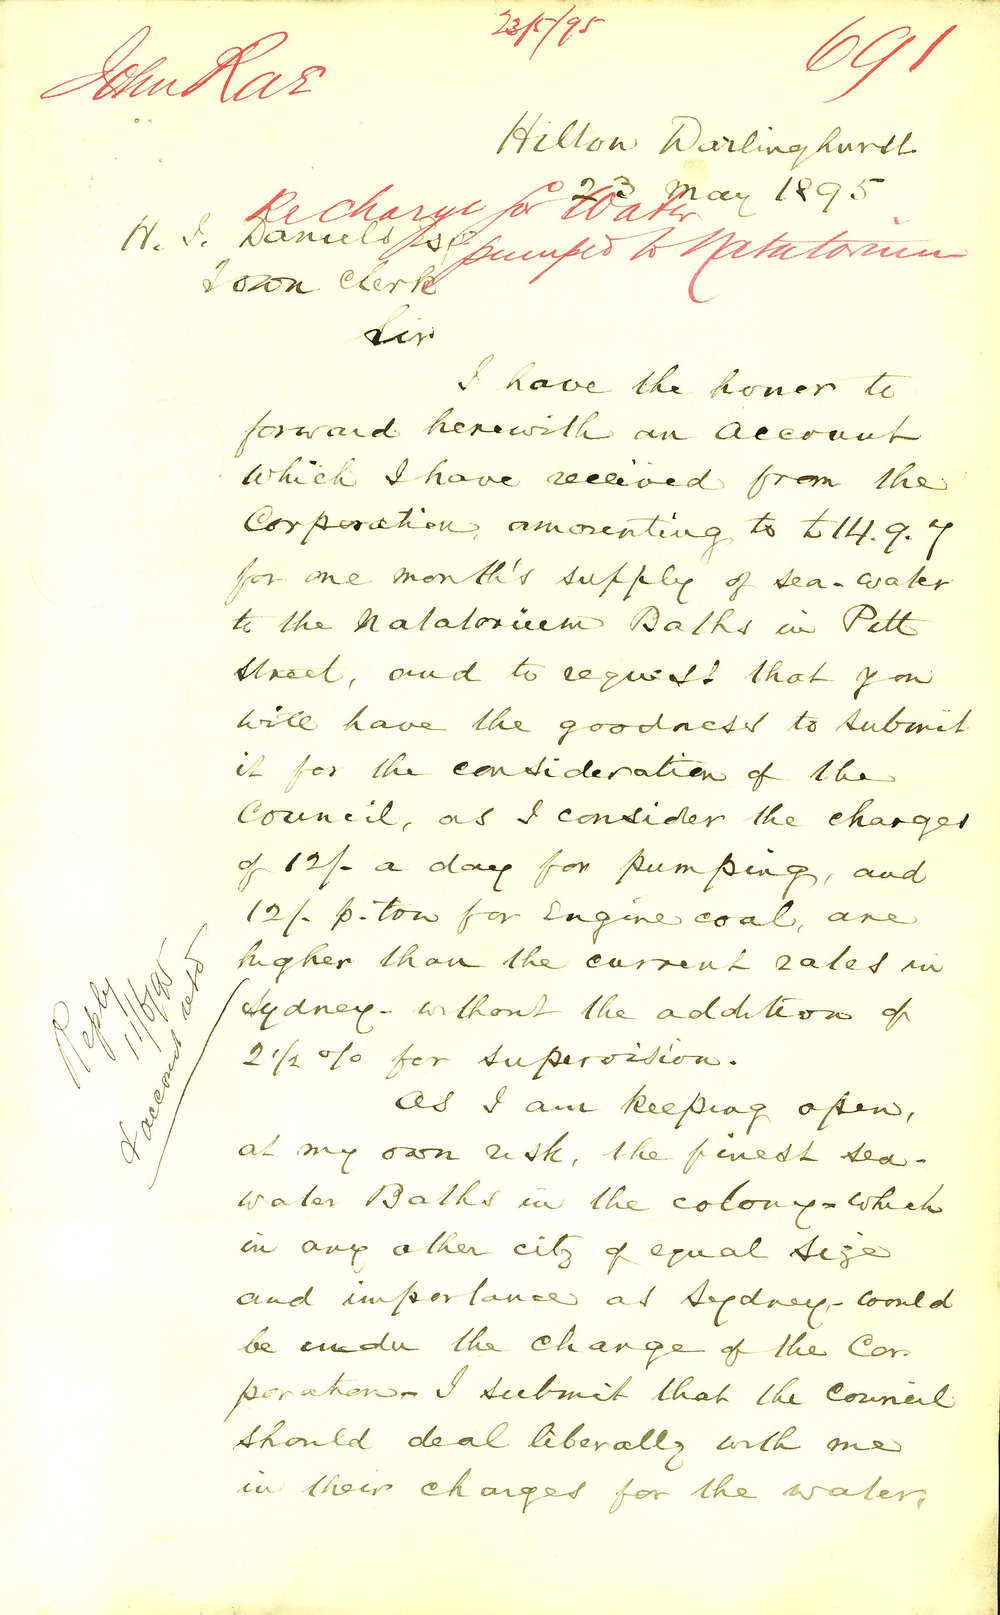 23/5/95
John Rae
691
Hilton Darlinghurst
23 May 1895
Re charge for Water
pumped to Natatorium
H. J. Daniels Esq
Town Clerk
Sir
I have the honor to
forward herewith an account
which I have received from the
Corporation, amounting to £14.9.7
for one month's supply of sea-water
to the Natatorium Baths in Pitt
street, and to request that you
will have the goodness to submit
it for the consideration of the
Council, as I consider the charges
of 12/- a day for pumping, and
12/- p. ton for Engine coal, are
higher than the current rates in
Sydney - without the addition of
2 1/2 % for supervision.
As I am keeping open,
at my own risk, the finest sea-
water Baths in the colony - which
in any other city of equal size
and importance as Sydney, - would
be under the charge of the Cor-
poration - I submit that the Council
should deal liberally with me
in their charges for the water,
Reply
11/6/95
& account retd